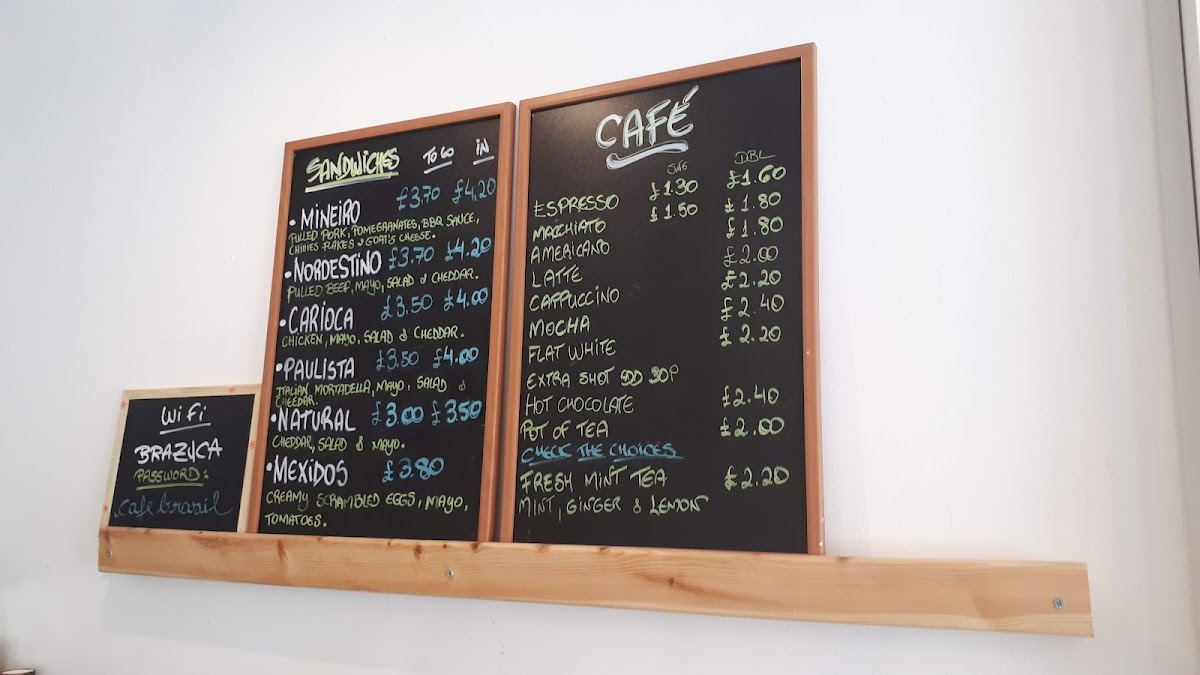 Wi Fi
BRAZUCA
PASSWORD:
cafe brasil
SANDWICHES TO GO IN
• MINEIRO £3.70 £4.20
PULLED PORK, POMEGRANATES, BBQ SAUCE,
CHILLIES FLAKES & GOAT'S CHEESE.
• NORDESTINO £3.70 £4.20
PULLED BEEF, MAYO, SALAD & CHEDDAR.
• CARIOCA £3.50 £4.00
CHICKEN, MAYO, SALAD & CHEDDAR.
• PAULISTA £3.50 £4.00
ITALIAN MORTADELLA, MAYO, SALAD &
CHEDDAR.
• NATURAL £3.00 £3.50
CHEDDAR, SALAD & MAYO.
• MEXIDOS £3.80
CREAMY SCRAMBLED EGGS, MAYO,
TOMATOES.
CAFÉ
SNG DBL
ESPRESSO £1.30 £1.60
MACCHIATO £1.50 £1.80
AMERICANO £1.80
LATTE £2.00
CAPPUCCINO £2.20
MOCHA £2.40
FLAT WHITE £2.20
EXTRA SHOT ADD 30P
HOT CHOCOLATE £2.40
POT OF TEA £2.00
CHECK THE CHOICES
FRESH MINT TEA £2.20
MINT, GINGER & LEMON